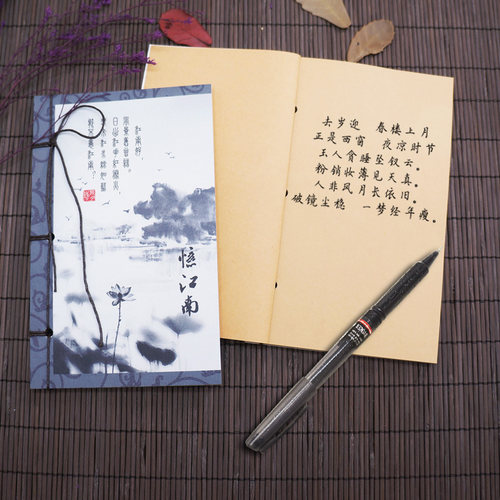 江南好，
風景舊曾諳。
日出江花紅勝火，
春來江水綠如藍。
能不憶江南。
憶江南
去岁迎 春楼上月
正是西窗 夜凉时节
玉人贪睡坠钗云。
粉销妆薄见天真。
人非风月长依旧。
破镜尘稳 一梦经年瘦。